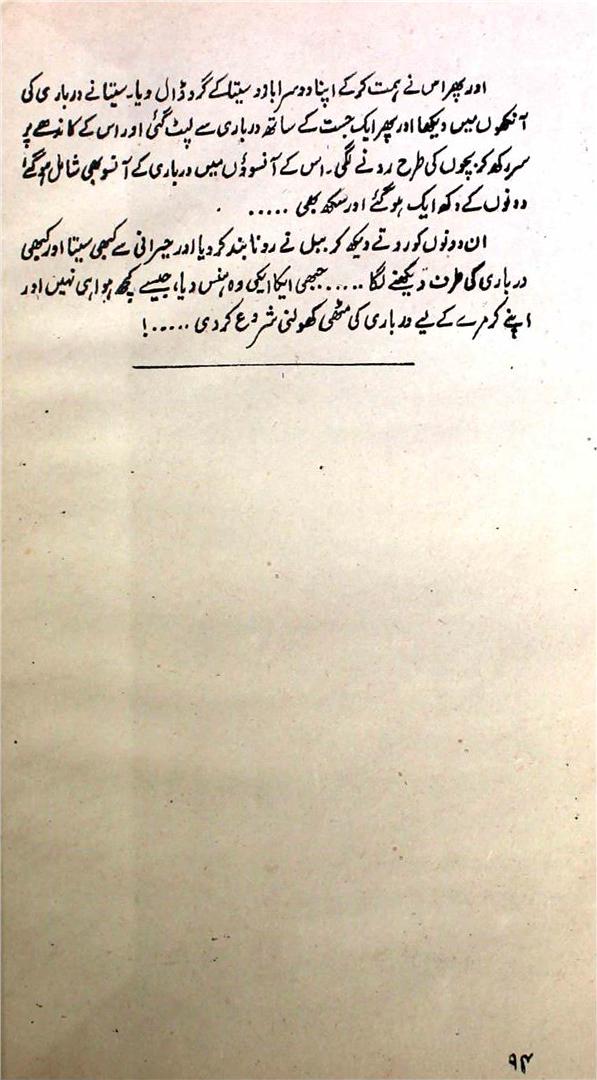 اور پھر اس نے ہمت کر کے اپنا دوسرا بازو سیتا کے گرد ڈال دیا۔ سیتا نے درباری کی
آنکھوں میں دیکھا اور پھر ایک جست کے ساتھ درباری سے لپٹ گئی اور اس کے کاندھے پر
سر رکھ کر بچوں کی طرح رونے لگی۔ اس کے آنسوؤں میں درباری کے آنسو بھی شامل ہو گئے
دونوں کے دکھ ایک ہو گئے اور سکھ بھی .....
ان دونوں کو روتے دیکھ کر ببل نے رونا بند کر دیا اور حیرانی سے کبھی سیتا اور کبھی
درباری کی طرف دیکھنے لگا ..... جبھی ایکا ایکی وہ ہنس دیا، جیسے کچھ ہوا ہی نہیں اور
اپنے کرمرے کے لیے درباری کی مٹھی کھولنی شروع کر دی .....!
۹۴